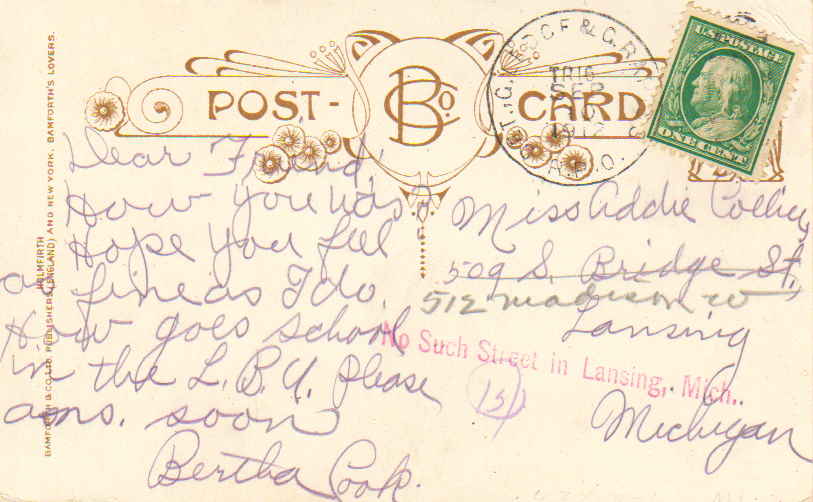 POST-
BCo
CARD
U.S. POSTAGE
ONE CENT
SEP
1912
R.P.O.
Dear Friend,
How you was?
Hope you feel
as fine as I do.
How goes school
in the L.B.U. Please
ans. soon
Bertha Cook.
Miss Addie Collier,
509 S. Bridge St,
512 madison w
Lansing
No Such Street in Lansing, Mich..
15
Michigan
BAMFORTH & CO. LTD. PUBLISHERS (ENGLAND) AND NEW YORK. BAMFORTH'S LOVERS.
HOLMFIRTH